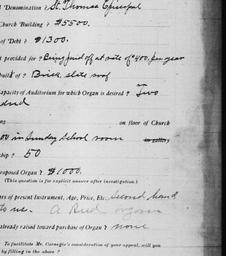 Denomination ? St. Thomas Episcopal
Church Building ? $5500.
of Debt ? $1300.
t provided for ? Being paid off at rate of $400. per year
built of ? Brick, slate roof
Capacity of Auditorium for which Organ is desired ? Two
on floor of Church
00 in Sunday School room
ship ? 50
roposed Organ ? $1000.
(This question is for explicit answer after investigation.)
rs of present Instrument, Age, Price, Etc. Second hand
to us. A Reed organ
already raised toward purchase of Organ ? none
To facilitate Mr. Carnegie's consideration of your appeal, will you
by filling in the above ?